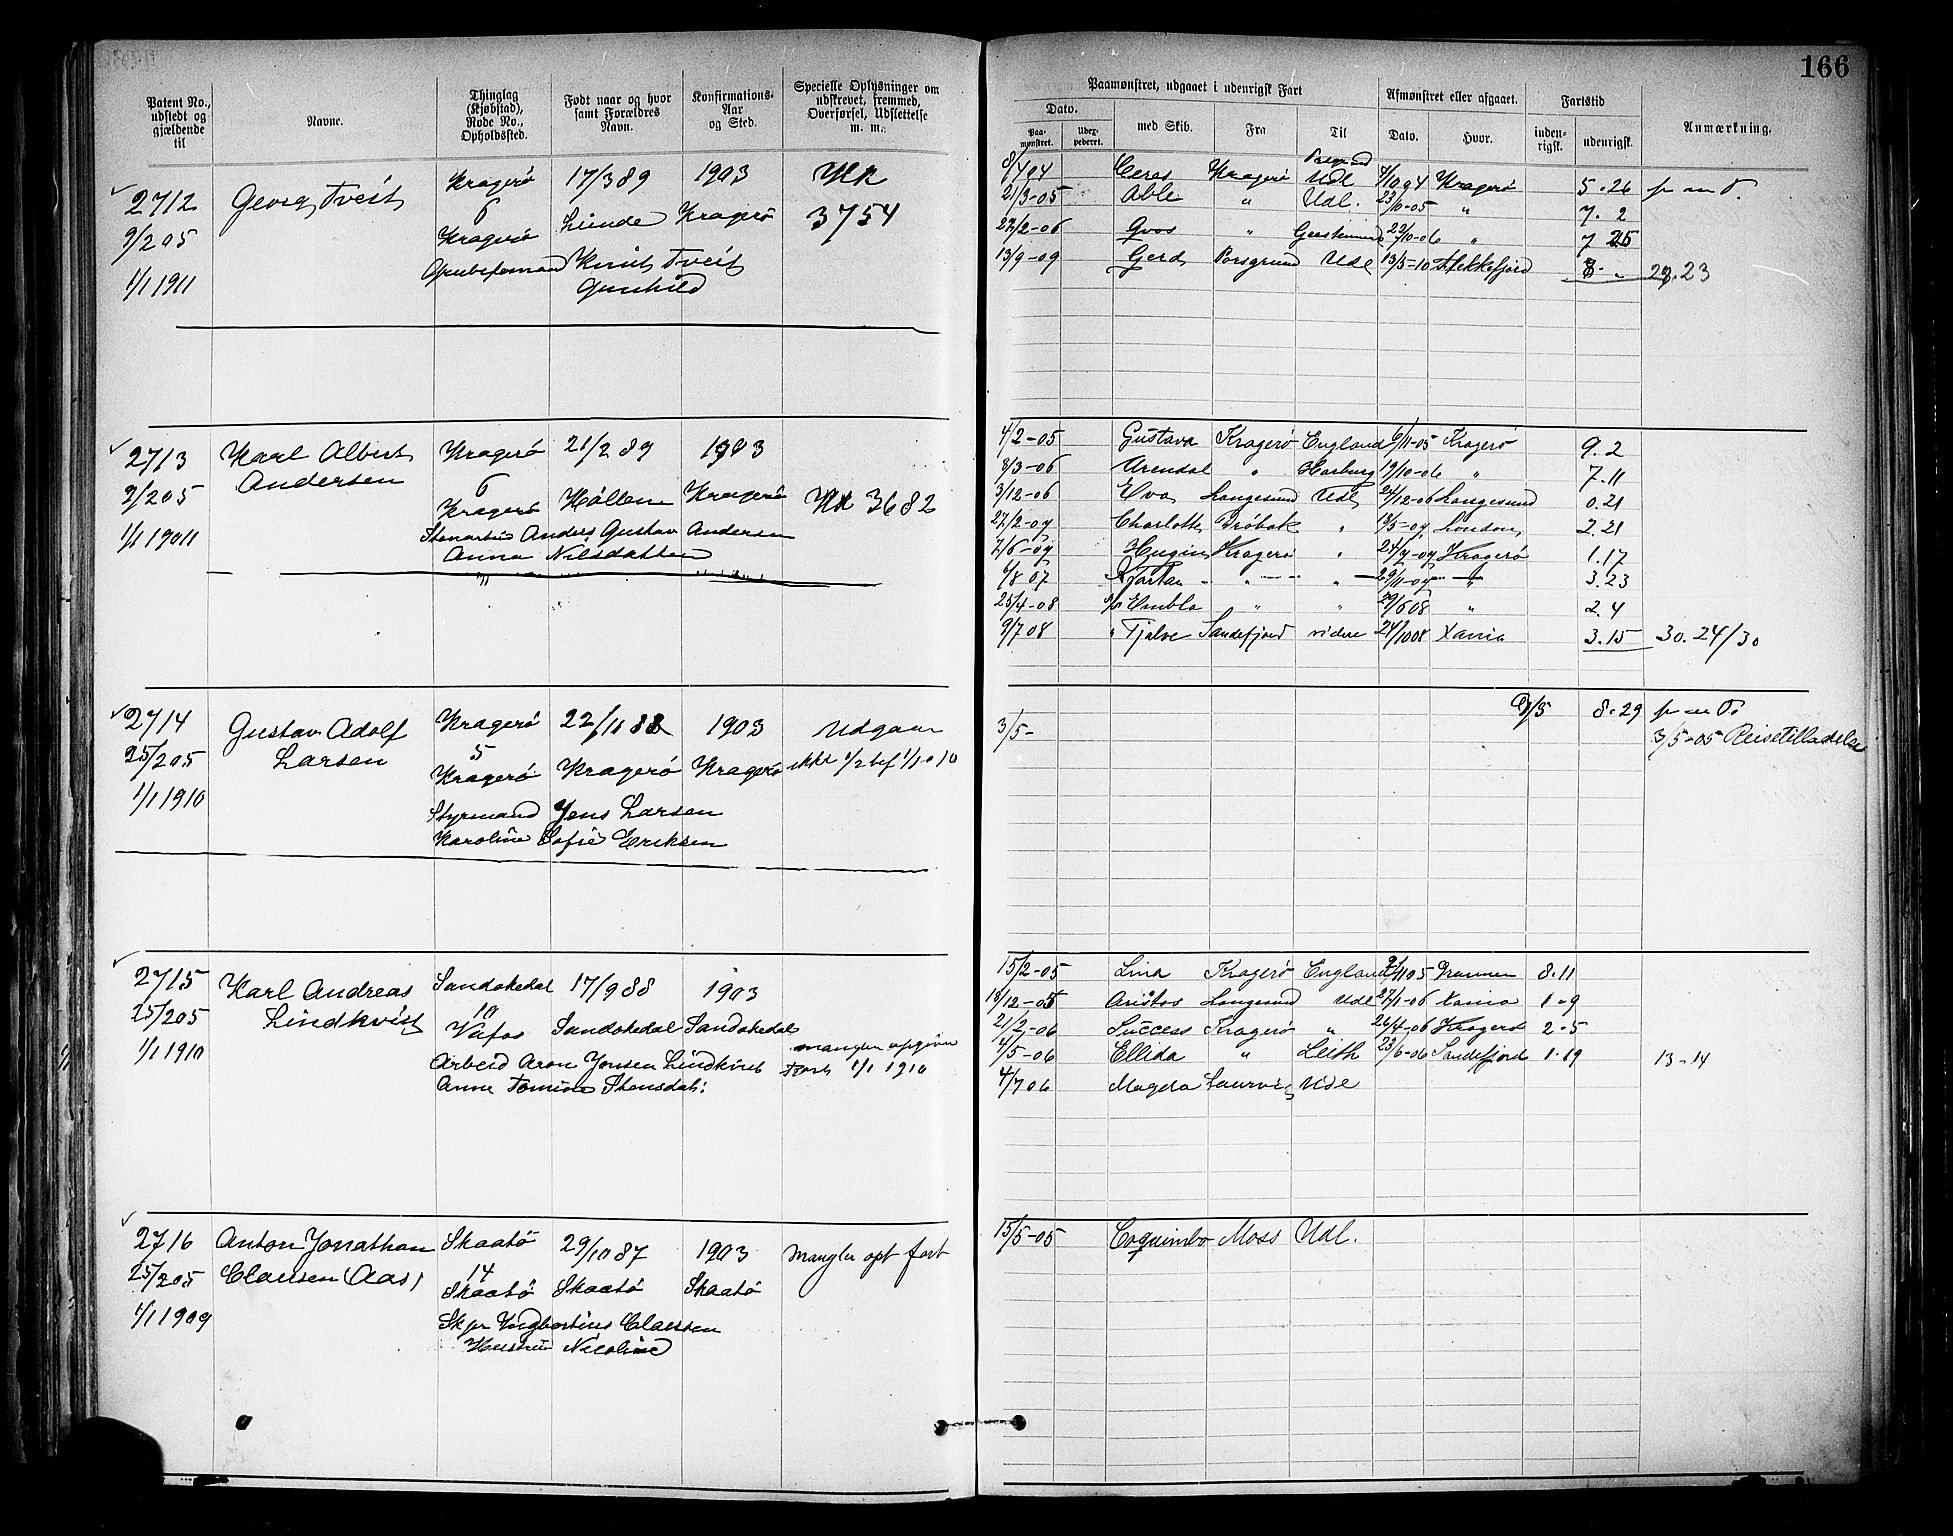 166
Patent No., udstedt og gjældende til
Navne.
Thinglag (Kjøbstad), Rode No., Opholdssted.
Født naar og hvor samt Forældres Navn.
Konfirmations-Aar og Sted.
Specielle Oplysninger om udskrevet, fremmed, Overførsel, Udslettelse m. m.
Paamønstret, udgaaet i udenrigsk Fart
Afmønstret eller afgaaet.
Fartstid
Anmærkning.
Dato.
med Skib.
Fra
Til
Dato.
Hvor.
inden-rigsk.
udenrigsk.
Paa-mønstret.
2712 Georg Tveit Kragerø 17/3 89 1903
9/2 05 6 Lunde Kragerø 3754
Kragerø Knut Tveit
1/1 1911 Gunhild
8/4 04 Ceres Kragerø Udl 4/10 04 Kragerø 5.26
21/3-05 Able " Udl. 23/6-05 " 7. 2
22/2-06 " 23/10-06 " 7 25
13/9-09 Gerd Porsgrund Udl 13/5-10 Flekkefjord
2713 Karl Albert Andersen Kragerø 21/2 89 1903
9/2 05 6 Kragerø Kragerø 3682
1/1 1911 Anders Gustav Andersen
Anna Nilsdatter
4/2-05 Gustava Kragerø England 6/11-05 Kragerø 9. 2
8/3-06 Arendal " Harburg 19/10-06 " 7.11
3/12-06 Eva Langesund Udl 24/12-06 Langesund 0.21
27/2-07 Charlotte Drøbak " London 2.21
7/6-07 Hugin Kragerø " Kragerø 1.17
6/8 07 " " " 3.23
25/4-08 Embla " " 29/6 08 " 2.4
9/7 08 " Tjalve Sandefjord videre 24/10 08 Xania 3.15 30.24/30
2714 Gustav Adolf Larsen Kragerø 22/11 88 1903 Udgaar
25/2 05 5 Kragerø Kragerø Kragerø
1/1 1910 Styrmand Jens Larsen
Karoline Sofie Eriksen
3/5- 8.29
3/5-05 Reisetilladelse
2715 Karl Andreas Lindkvist Sandøkedal 17/9 88 1903
25/2 05 10 Vafos Sandøkedal Sandøkedal
1/1 1910 Arbeid Aron Jonsen Lindkvist 1/1 1910
15/2-05 Lina Kragerø England 8.11
18/12-05 Aristos Langesund Udl 27/1-06 Xania 1.9
21/2-06 Success Kragerø " 26/4-06 Kragerø 2.5
4/5-06 Ellida " Leith 23/6-06 Sandefjord 1.19 13-14
4/7 06 Magda Laurvig Udl
2716 Anton Jonathan Clausen (Aas) Skaatø 29/10 87 1903 Mangler opt fart
25/2 05 14 Skaatø Skaatø Skaatø
1/1 1909 Clausen
Nicoline
15/5-05 Coquimbo Moss Udl.